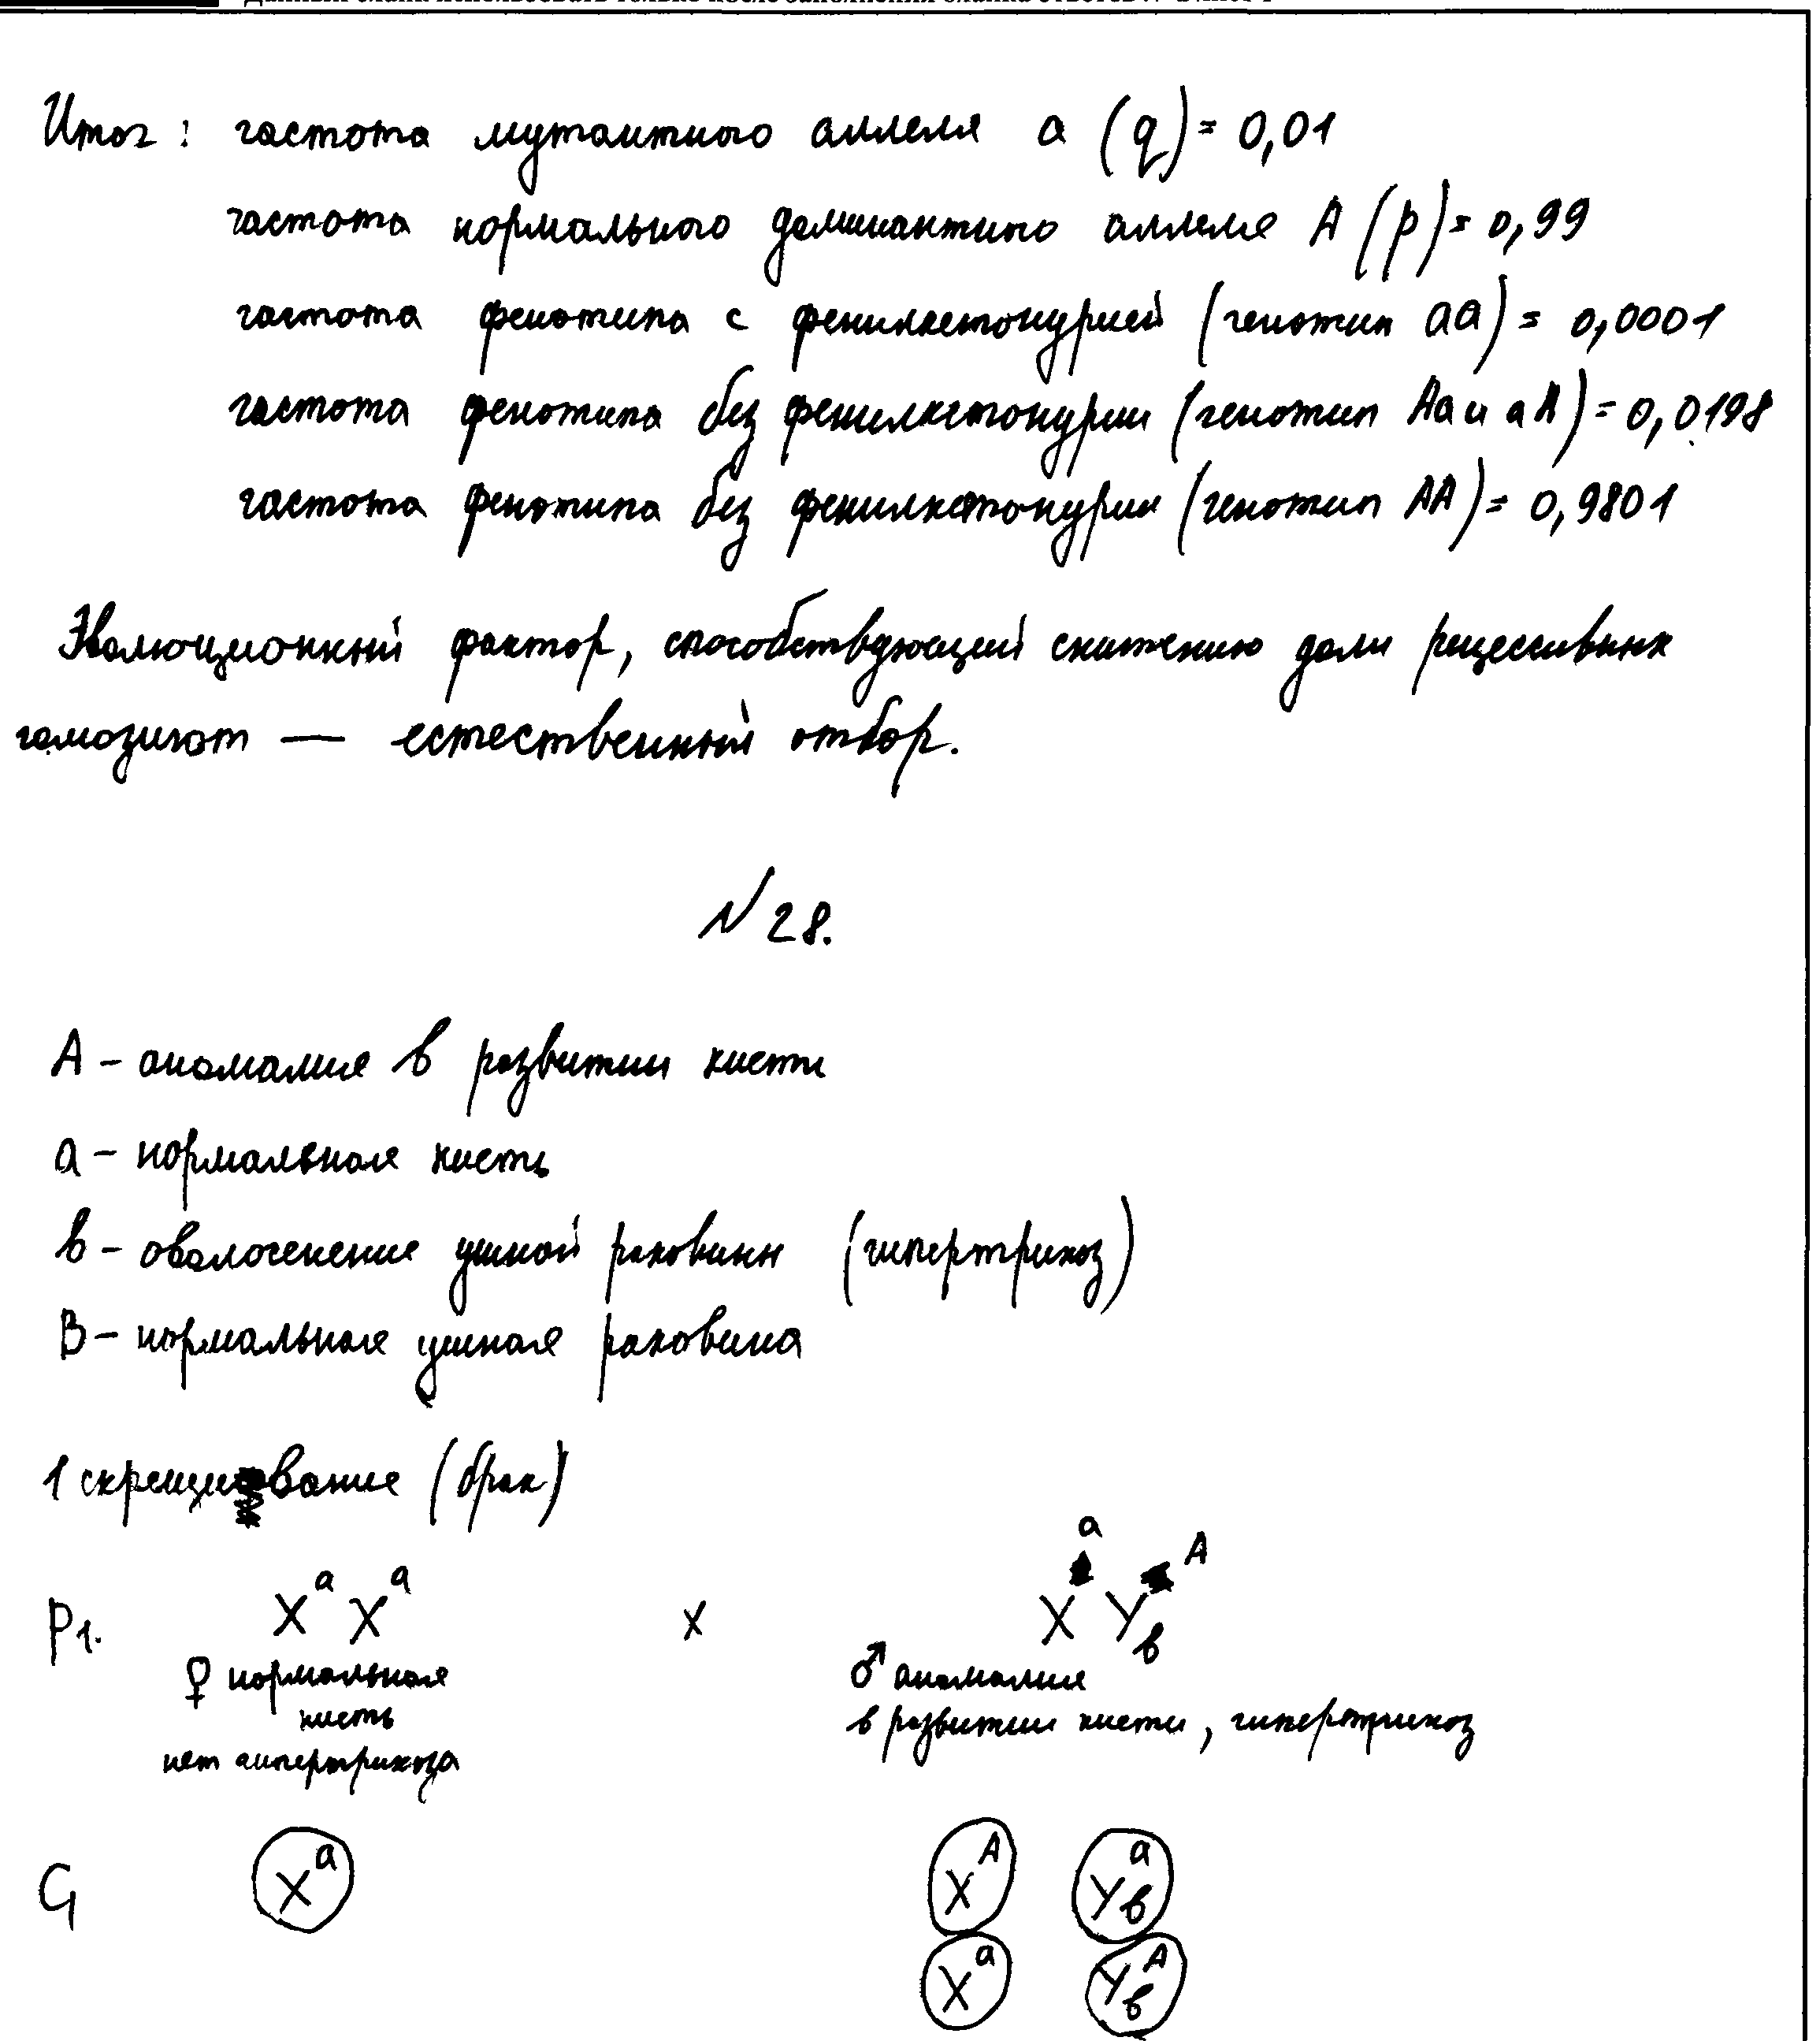 Итог: частота мутантного аллеля a (q) = 0,01
частота нормального доминантного аллеля A (p) = 0,99
частота фенотипа с фенилкетонурией (генотип aa) = 0,0001
частота фенотипа без фенилкетонурии (генотип Aa и aA) = 0,0198
частота фенотипа без фенилкетонурии (генотип AA) = 0,9801
Эволюционный фактор, способствующий снижению доли рецессивных
гомозигот — естественный отбор.
№ 28.
A – аномалия в развитии кисти
a – нормальная кисть
в – оволосенение ушной раковины (гипертрихоз)
В – нормальная ушная раковина
1 скрещивание (брак)
P1. XᵃXᵃ x XᵃYᴬв
♀ нормальная ♂ аномалия
кисть в развитии кисти, гипертрихоз
нет гипертрихоза
G Xᵃ Xᴬ Yᵃв
Xᵃ Yᴬв